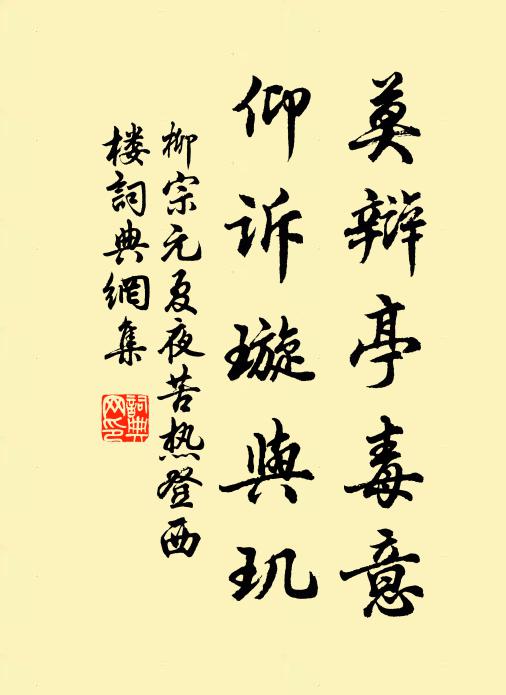 莫辩亭毒意
仰诉璇與玑
柳宗元夏夜苦热登西
楼詞典網集
詞典网印